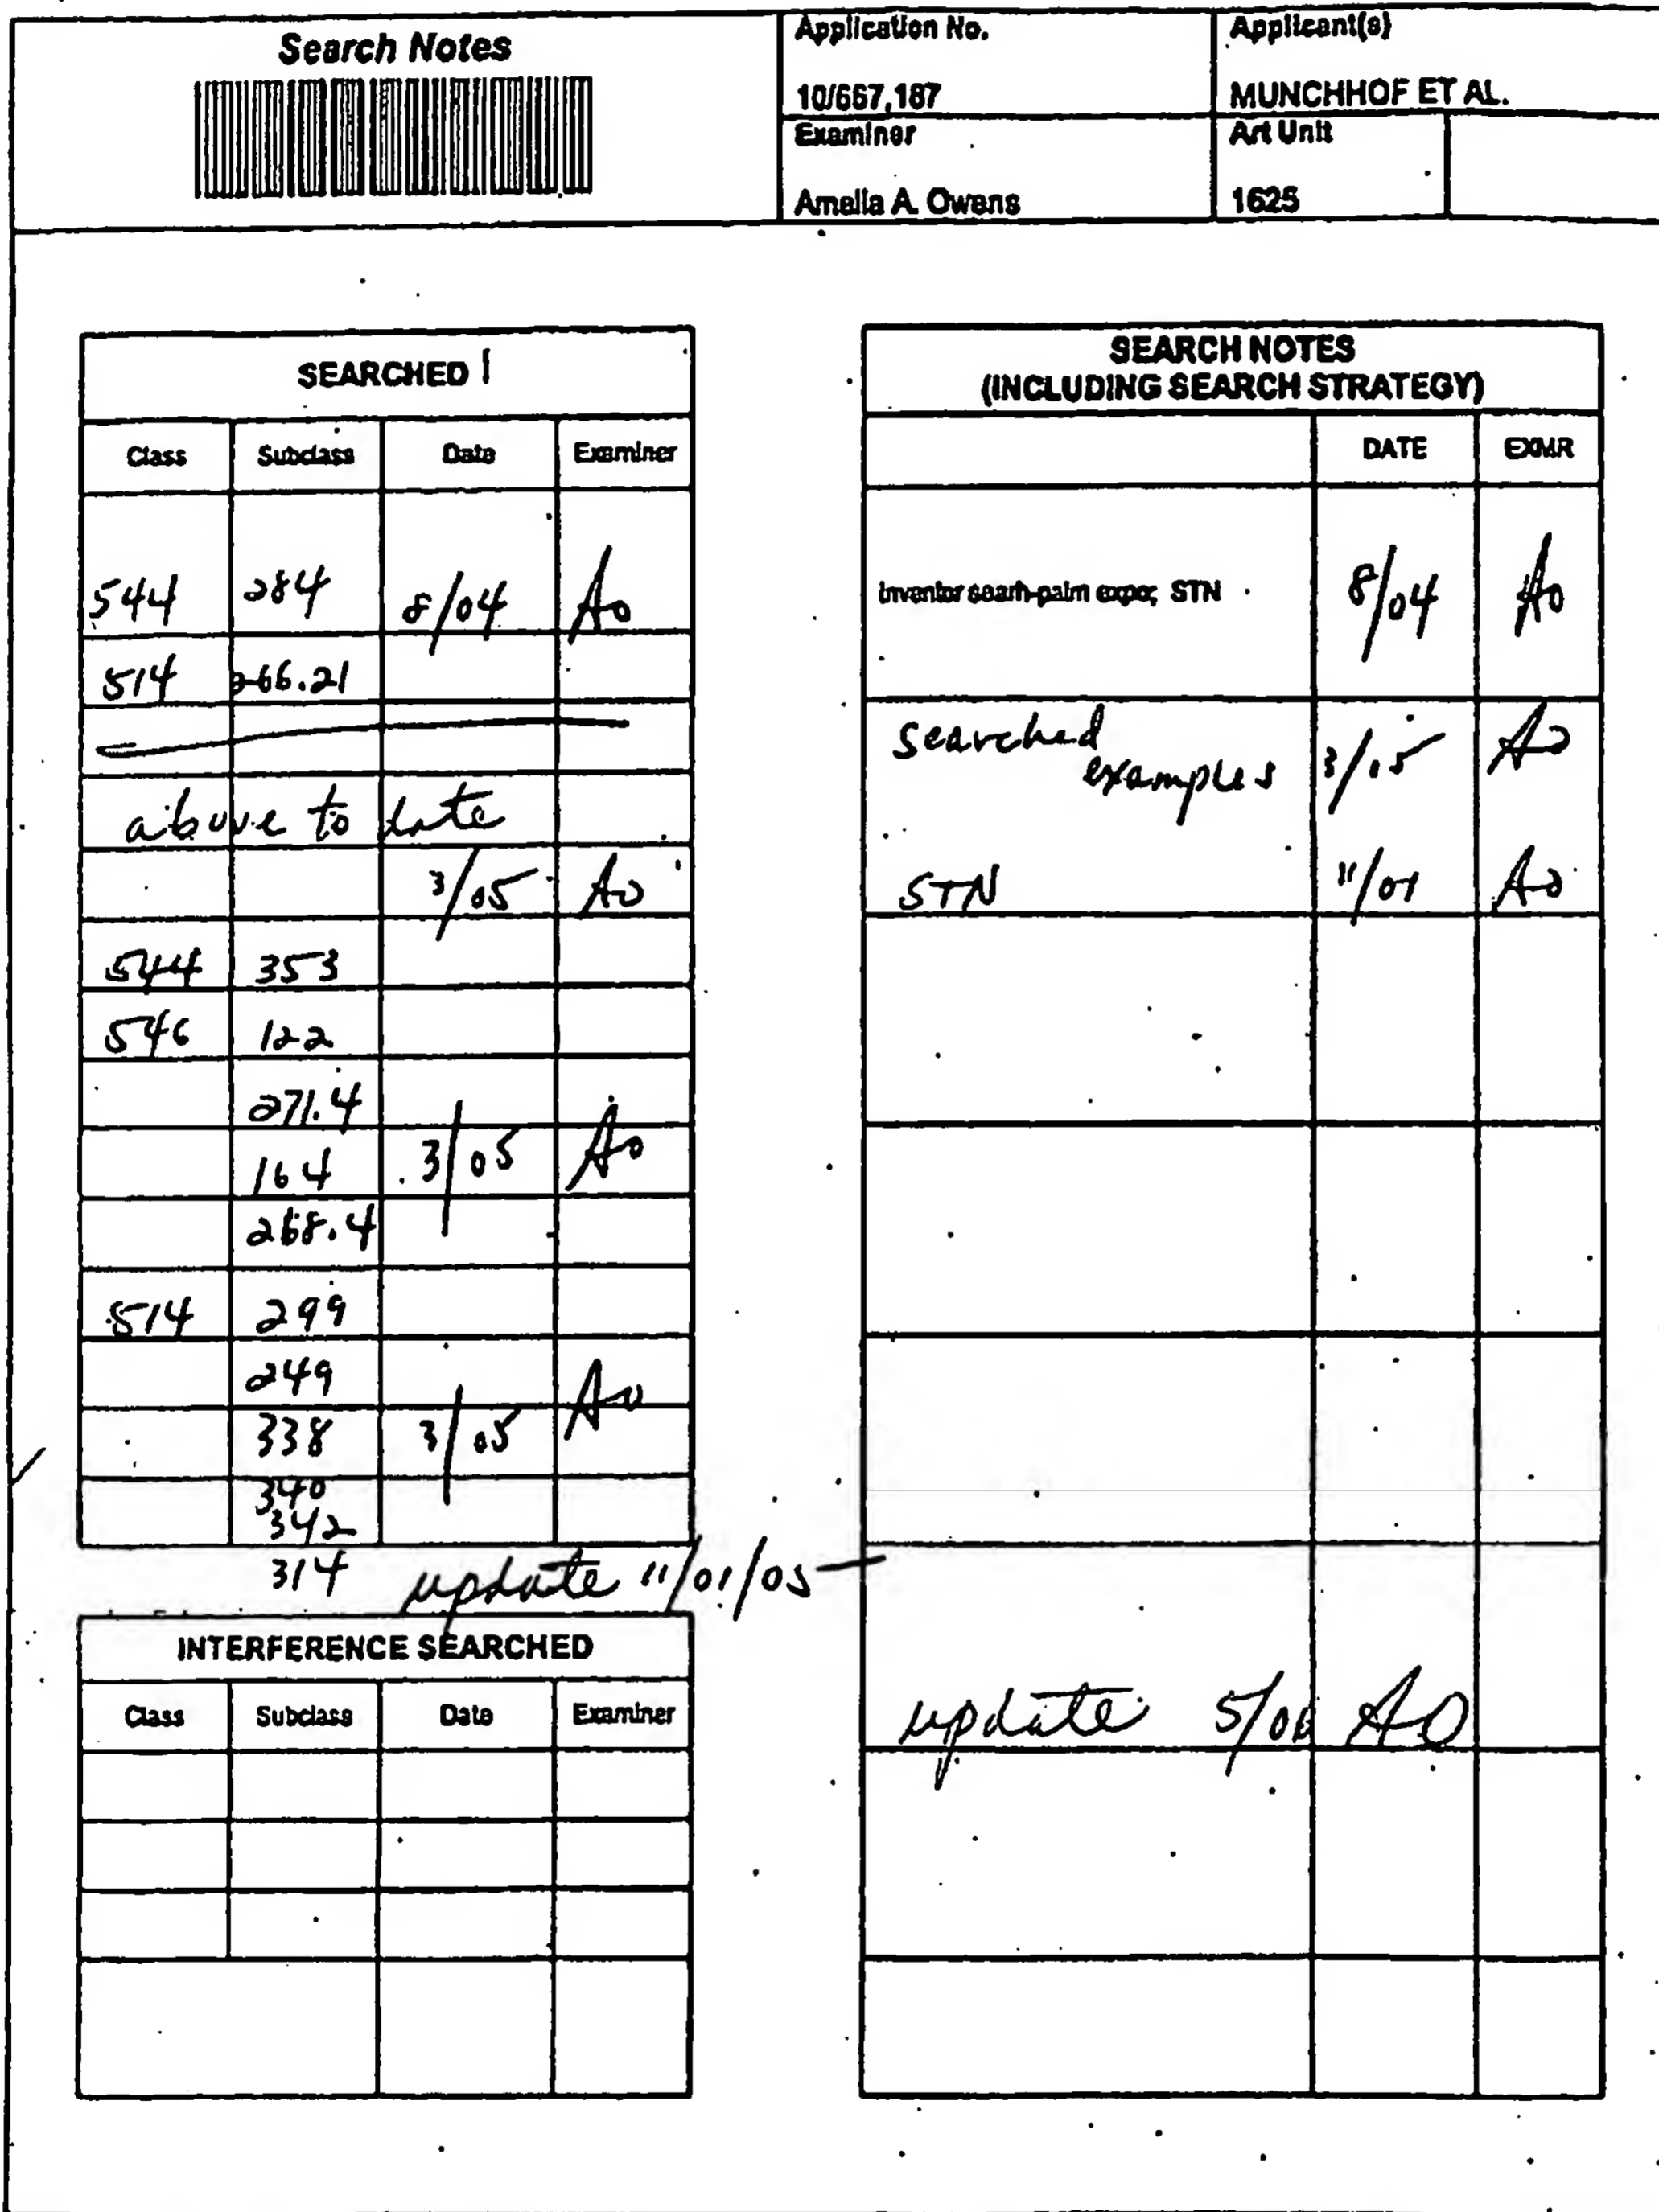 Search Notes
Application No.
10/667,187
Applicant(s)
MUNCHHOF ET AL.
Examiner
Amelia A. Owens
Art Unit
1625
SEARCHED
Class Subclass Date Examiner
544 284 8/04 AO
514 266.21
above to date
3/05 AO
544 353
546 122
271.4
164 3/05 AO
268.4
514 299
249
338 3/05 AO
340
342
314 update 11/01/05
INTERFERENCE SEARCHED
Class Subclass Date Examiner
SEARCH NOTES
(INCLUDING SEARCH STRATEGY)
DATE EXMR
Inventor searh-palm expo; STN 8/04 AO
searched
examples 3/05 AO
STN 11/01 AO
update 5/06 AO